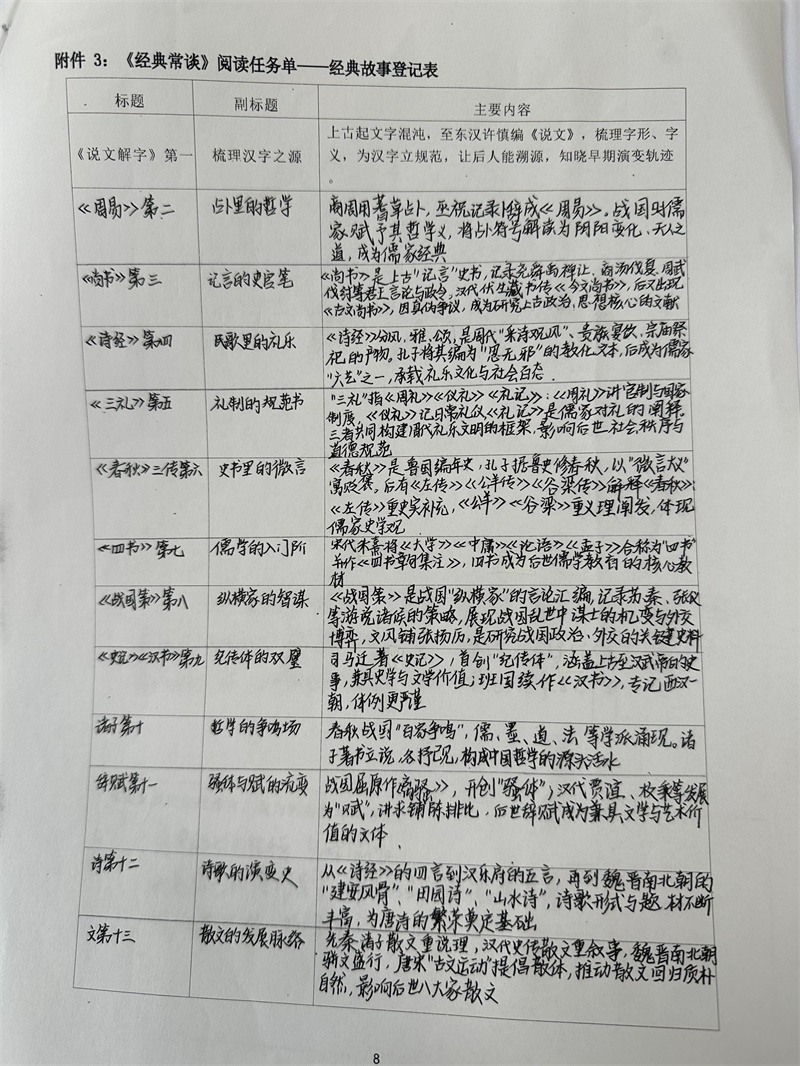 附件 3：《经典常谈》阅读任务单——经典故事登记表
标题 副标题 主要内容
《说文解字》第一 梳理汉字之源 上古起文字混沌，至东汉许慎编《说文》，梳理字形、字
义，为汉字立规范，让后人能溯源，知晓早期演变轨迹
。
《周易》第二 占卜里的哲学 商周用蓍草占卜，巫祝记录卜辞成《周易》。战国时儒
家赋予其哲学义，将占卜符号解读为阴阳变化、天人之
道，成为儒家经典
《尚书》第三 记言的史官笔 《尚书》是上古"记言"史书，记录尧舜禹禅让、商汤伐夏、周武
伐纣等君王言论与政令，汉代伏生藏书传《今文尚书》，后又出现
《古文尚书》，因真伪争议，成为研究上古政治、思想核心的文献
《诗经》第四 民歌里的礼乐 《诗经》分风、雅、颂，是周代"采诗观风"、贵族宴饮、宗庙祭
祀的产物。孔子将其编为"思无邪"的教化文本，后成为儒家
"六艺"之一，承载礼乐文化与社会百态.
《三礼》第五 礼制的规范书 "三礼"指《周礼》《仪礼》《礼记》：《周礼》讲官制与国家
制度，《仪礼》记日常礼仪《礼记》是儒家对礼的阐释，
三者共同构建周代礼乐文明的框架，影响后世社会秩序与
道德规范
《春秋》三传第六 史书里的微言 《春秋》是鲁国编年史，孔子据鲁史修春秋，以"微言大义"
寓贬褒，后有《左传》《公羊传》《谷梁传》解释《春秋》：
《左传》重史实补充，《公羊》《谷梁》重义理阐发，体现
儒家史学观
《四书》第七 儒学的入门阶 宋代朱熹将《大学》《中庸》《论语》《孟子》合称为"四书"
并作《四书章句集注》，四书成为后世儒学教育的核心教
材
《战国策》第八 纵横家的智谋 《战国策》是战国"纵横家"的言论汇编，记录苏秦、张仪
等游说诸侯的策略，展现战国乱世中谋士的机变与外交
博弈，文风铺张扬厉，是研究战国政治、外交的关键史料
《史记》《汉书》第九 纪传体的双璧 司马迁著《史记》，首创"纪传体"，涵盖上古至汉武帝的史
事，兼具史学与文学价值；班固续作《汉书》，专记西汉一
朝，体例更严谨
诸子第十 哲学的争鸣场 春秋战国"百家争鸣"，儒、墨、道、法等学派涌现。诸
子著书立说，各抒己见，构成中国哲学的源头活水
辞赋第十一 骚体与赋的流变 战国屈原作离骚》，开创"骚体"；汉代贾谊、枚乘等发展
为"赋"，讲求铺陈排比，后世辞赋成为兼具文学与艺术价
值的文体.
诗第十二 诗歌的演变史 从《诗经》的四言到汉乐府的五言，再到魏晋南北朝的
"建安风骨"、"田园诗"、"山水诗"，诗歌形式与题材不断
丰富，为唐诗的繁荣奠定基础
文第十三 散文的发展脉络 先秦诸子散文重说理，汉代史传散文重叙事，魏晋南北朝
骈文盛行，唐宋"古文运动"提倡散体，推动散文回归质朴
自然，影响后世八大家散文
8